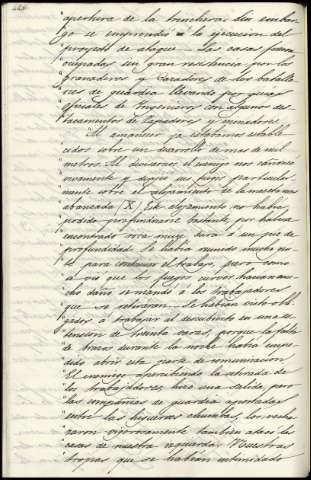 apertura de la trinchera: sin embar-
go se emprendió la ejecucion del
proyecto de ataque. Las casas fueron
ocupadas sin gran resistencia por los
granaderos y cazadores de los batallo-
nes de guardia llevando por guias
oficiales de Ingenieros con algunos des-
tacamentos de Zapadores y minadores.
Al amanecer ya estabamos estable-
cidos sobre un desarrollo de mas de mil
metros. Al descubrirnos el enemigo nos cañoneó
vivamente y dirigió sus fuegos particular-
mente sobre el alojamiento de la
avanzada (X). Este alojamiento no habia
podido profundizarse bastante, por haberse
encontrado roca muy dura á un pie de
profundidad. Se habia reunido mucha gen-
te para continuar el trabajo, pero como
se vió que los fuegos curvos hacian mu-
cho daño se mandó á los trabajadores
que se retiraran. Se habian visto obli-
gados á trabajar al descubierto en una es-
tension de treinta varas, porque la falta
de brazos durante la noche habia impe-
dido abrir esta parte de comunicacion.
El enemigo apercibiendo la retirada de
los trabajadores, hizo una salida, pero
las compañias de guardia apostadas
entre las higueras chumbas, los recha-
zaron vigorosamente: tambien atacó las
casas de nuestra izquierda. Nuestras
tropas que se habian intimidado